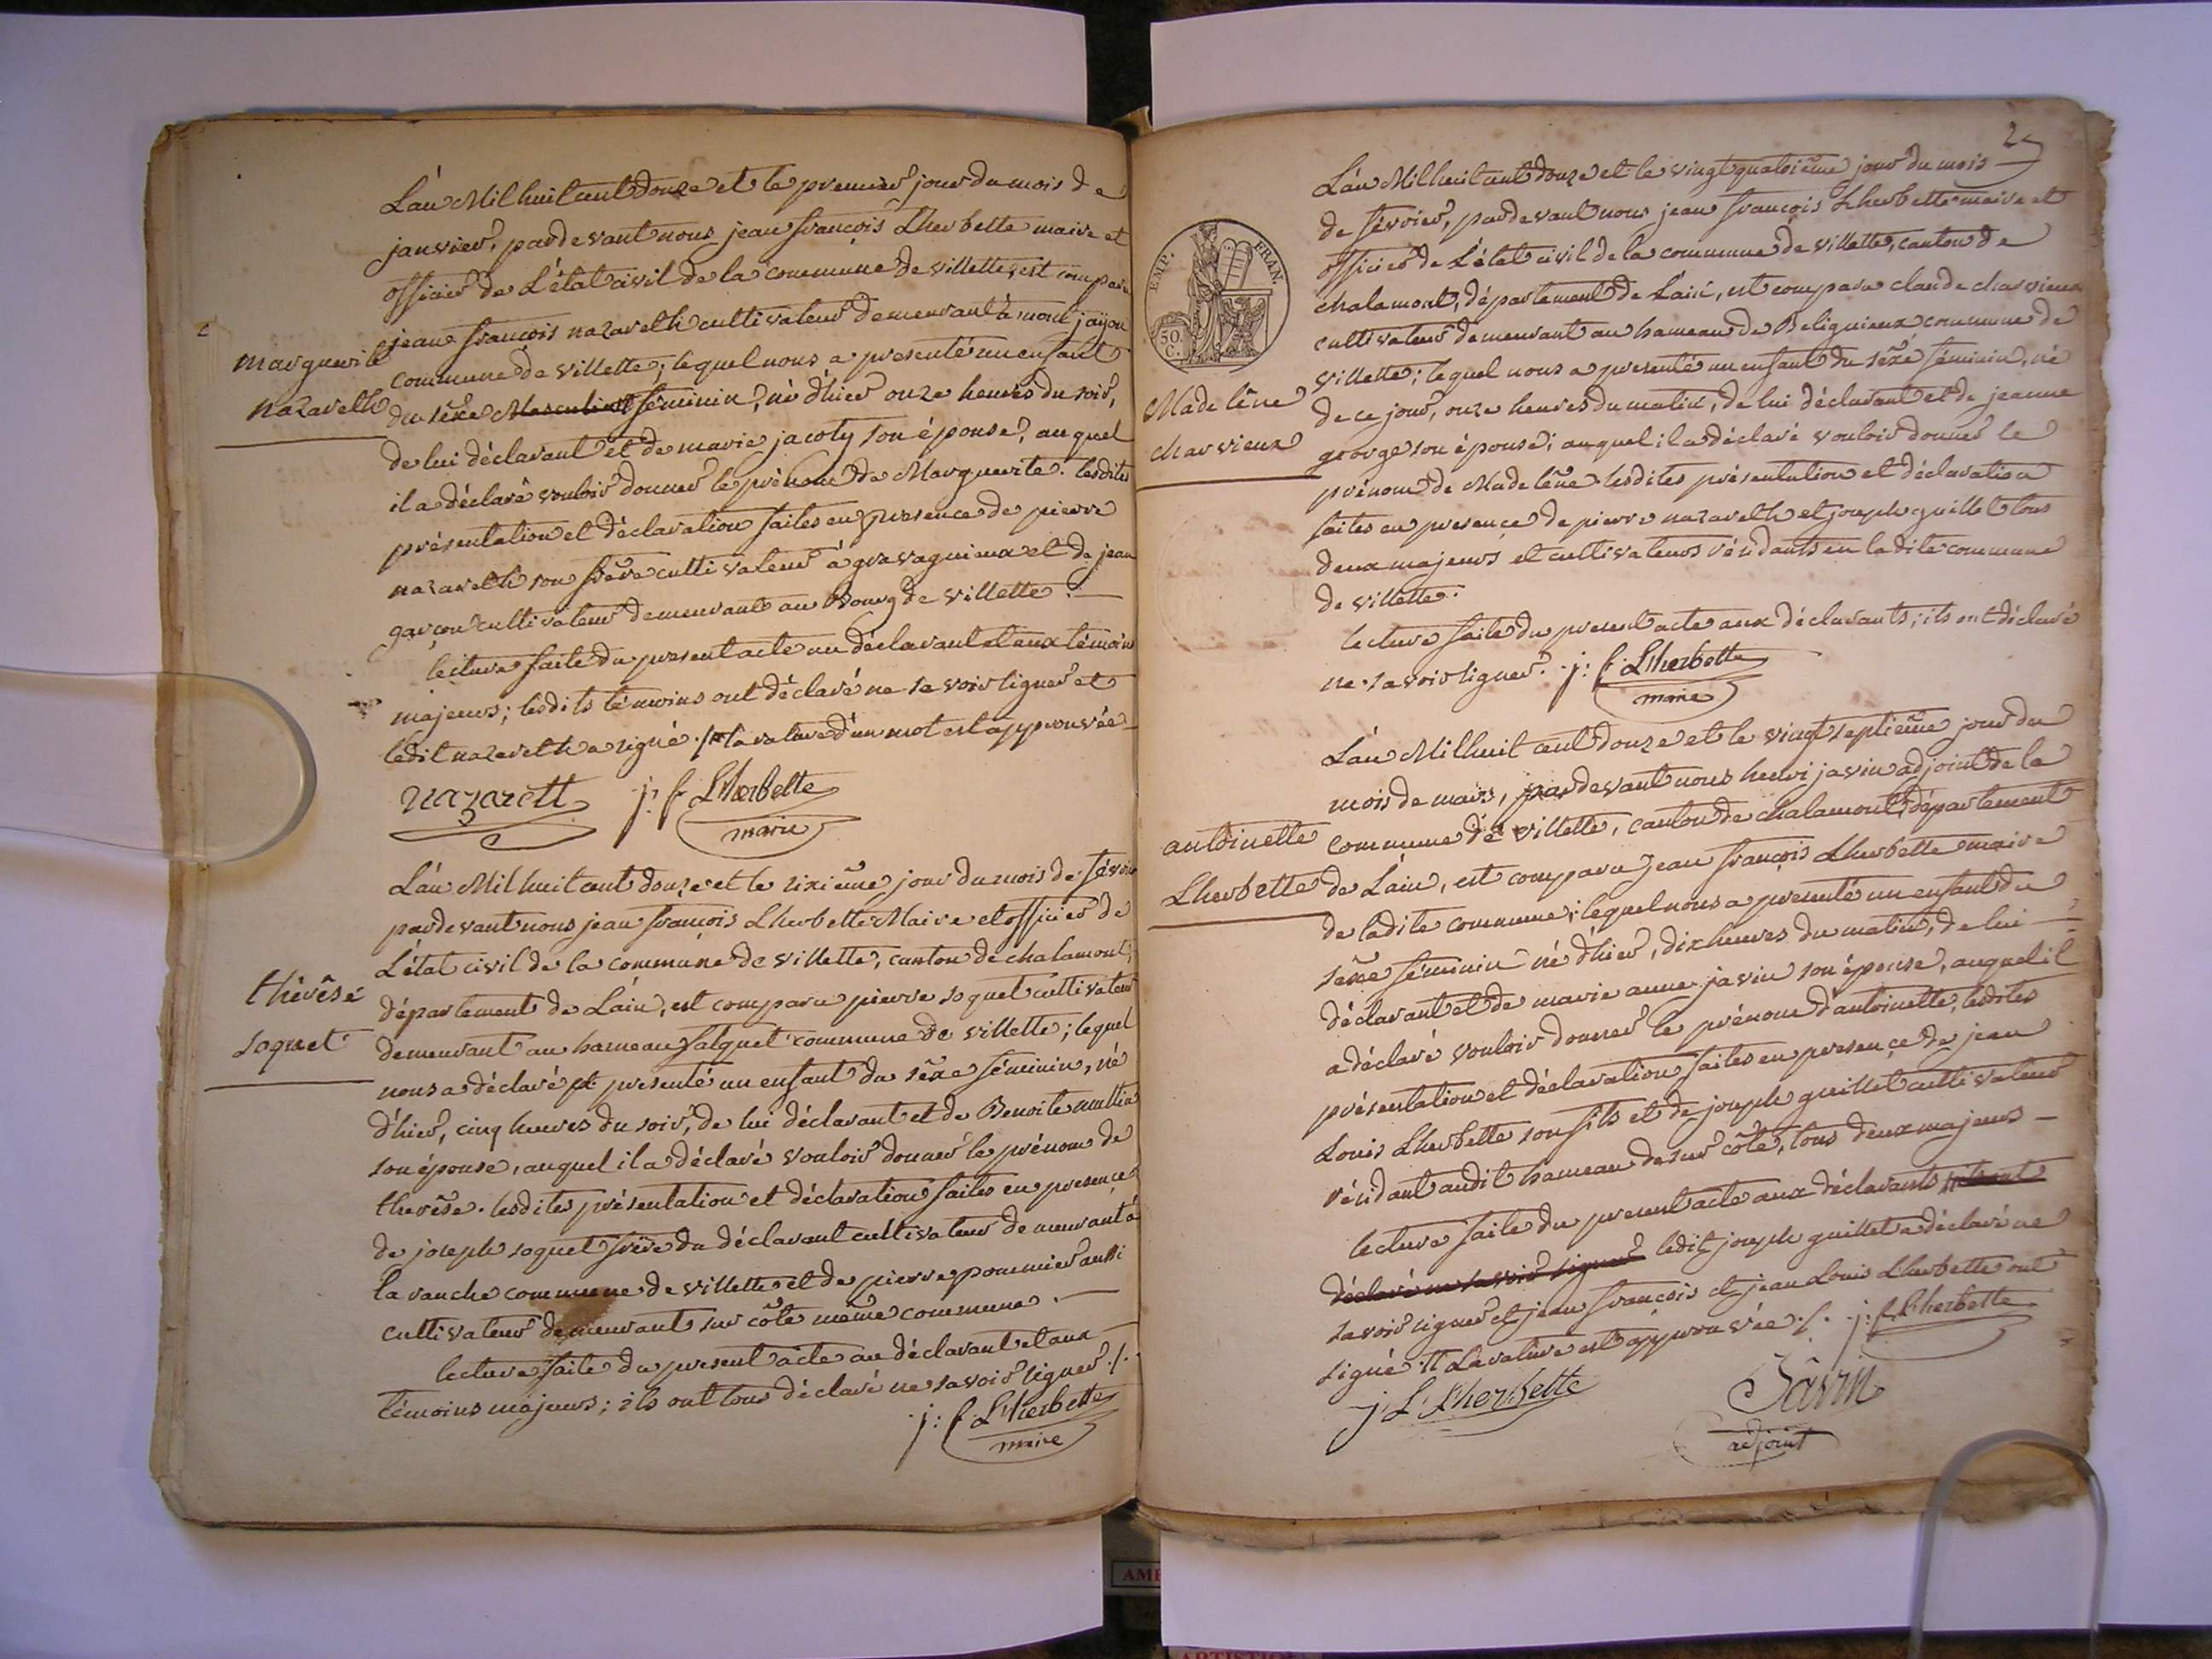 L'an Mil huit cent douze et le premier jour du mois de
janvier, pardevant nous jean françois Lherbette maire et
officier de L'état civil de la commune de villette, est comparu
jean françois nazareth cultivateur demeurant à mont jayon
commune de villette; lequel nous a presenté un enfant
marguerite
nazareth
du sêxe Masculin féminin, né d'hier onze heures du soir,
de lui déclarant et de marie jacoty son épouse, auquel
il a déclaré vouloir donner le prénom de Marguerite. lesdites
présentation et déclaration faites en presence de pierre
nazareth son frère cultivateur à gravagnieux et de jean
garçon cultivateur demeurant au Bourg de villette.
lecture faite du present acte au déclarant et aux témoins
majeurs; lesdits témoins ont déclaré ne savoir signer et
ledit nazareth a signé ./. la rature d'un mot est approuvée
nazarett j: f Lherbette
maire
L'an Mil huit cent douze et le sixième jour du mois de février
pardevant nous jean françois Lherbette Maire et officier de
L'état civil de la commune de villette, canton de chalamont,
thérêse
soquet
département de L'ain, est comparu pierre soquet cultivateur
demeurant au hameau salquet commune de villette; lequel
nous a déclaré et presenté un enfant du sêxe féminin, né
d'hier, cinq heures du soir, de lui déclarant et de Benoite
son épouse, auquel il a déclaré vouloir donner le prénom de
therêse. lesdites présentation et déclaration faites en presence
de joseph soquet frère du déclarant cultivateur demeurant à
la ranche commune de villette et de pierre pommier aussi
cultivateur demeurant sur côte même commune.
lecture faite du present acte au déclarant et aux
témoins majeurs; ils ont tous déclaré ne savoir signer ./.
j: f. Lherbette
maire
2
L'an Mil huit cent douze et le vingt quatrième jour du mois
de février, pardevant nous jean françois Lherbette maire et
officier de L'état civil de la commune de villette, canton de
EMP. FRAN.
50.
C.
chalamont, département de L'ain, est comparu claude charvieux
cultivateur demeurant au hameau de Belignieux commune de
villette; lequel nous a presenté un enfant du sêxe féminin, né
Madelêne
charvieux
de ce jour, onze heures du matin, de lui déclarant et de jeanne
george son épouse; auquel il a déclaré vouloir donner le
prénom de Madelêne. lesdites présentation et déclaration
faites en presence de pierre nazareth et joseph guillet tous
deux majeurs et cultivateurs résidants en ladite commune
de villette.
lecture faite du present acte aux déclarants; ils ont déclaré
ne savoir signer. j: f: Lherbette
maire
L'an Mil huit cent douze et le vingt septième jour du
mois de mars, pardevant nous henri javin adjoint de la
antoinette
Lherbette
commune de villette, canton de chalamont, département
de L'ain, est comparu Jean françois Lherbette maire
de ladite commune; lequel nous a presenté un enfant du
sêxe féminin né d'hier, dix heures du matin, de lui
déclarant et de marie anne javin son épouse, auquel il
a déclaré vouloir donner le prénom d'antoinette, lesdites
présentation et déclaration faites en presence de jean
Louis Lherbette son fils et de joseph guillet cultivateur
résidant audit hameau de sur côte, tous deux majeurs
lecture faite du present acte aux déclarants ils ont
déclaré ne savoir signer ledit joseph guillet a déclaré ne
savoir signer et jean françois et jean Louis Lherbette ont
signé. La rature est approuvée ./. j: f. Lherbette
j L Lherbette
Javin
adjoint